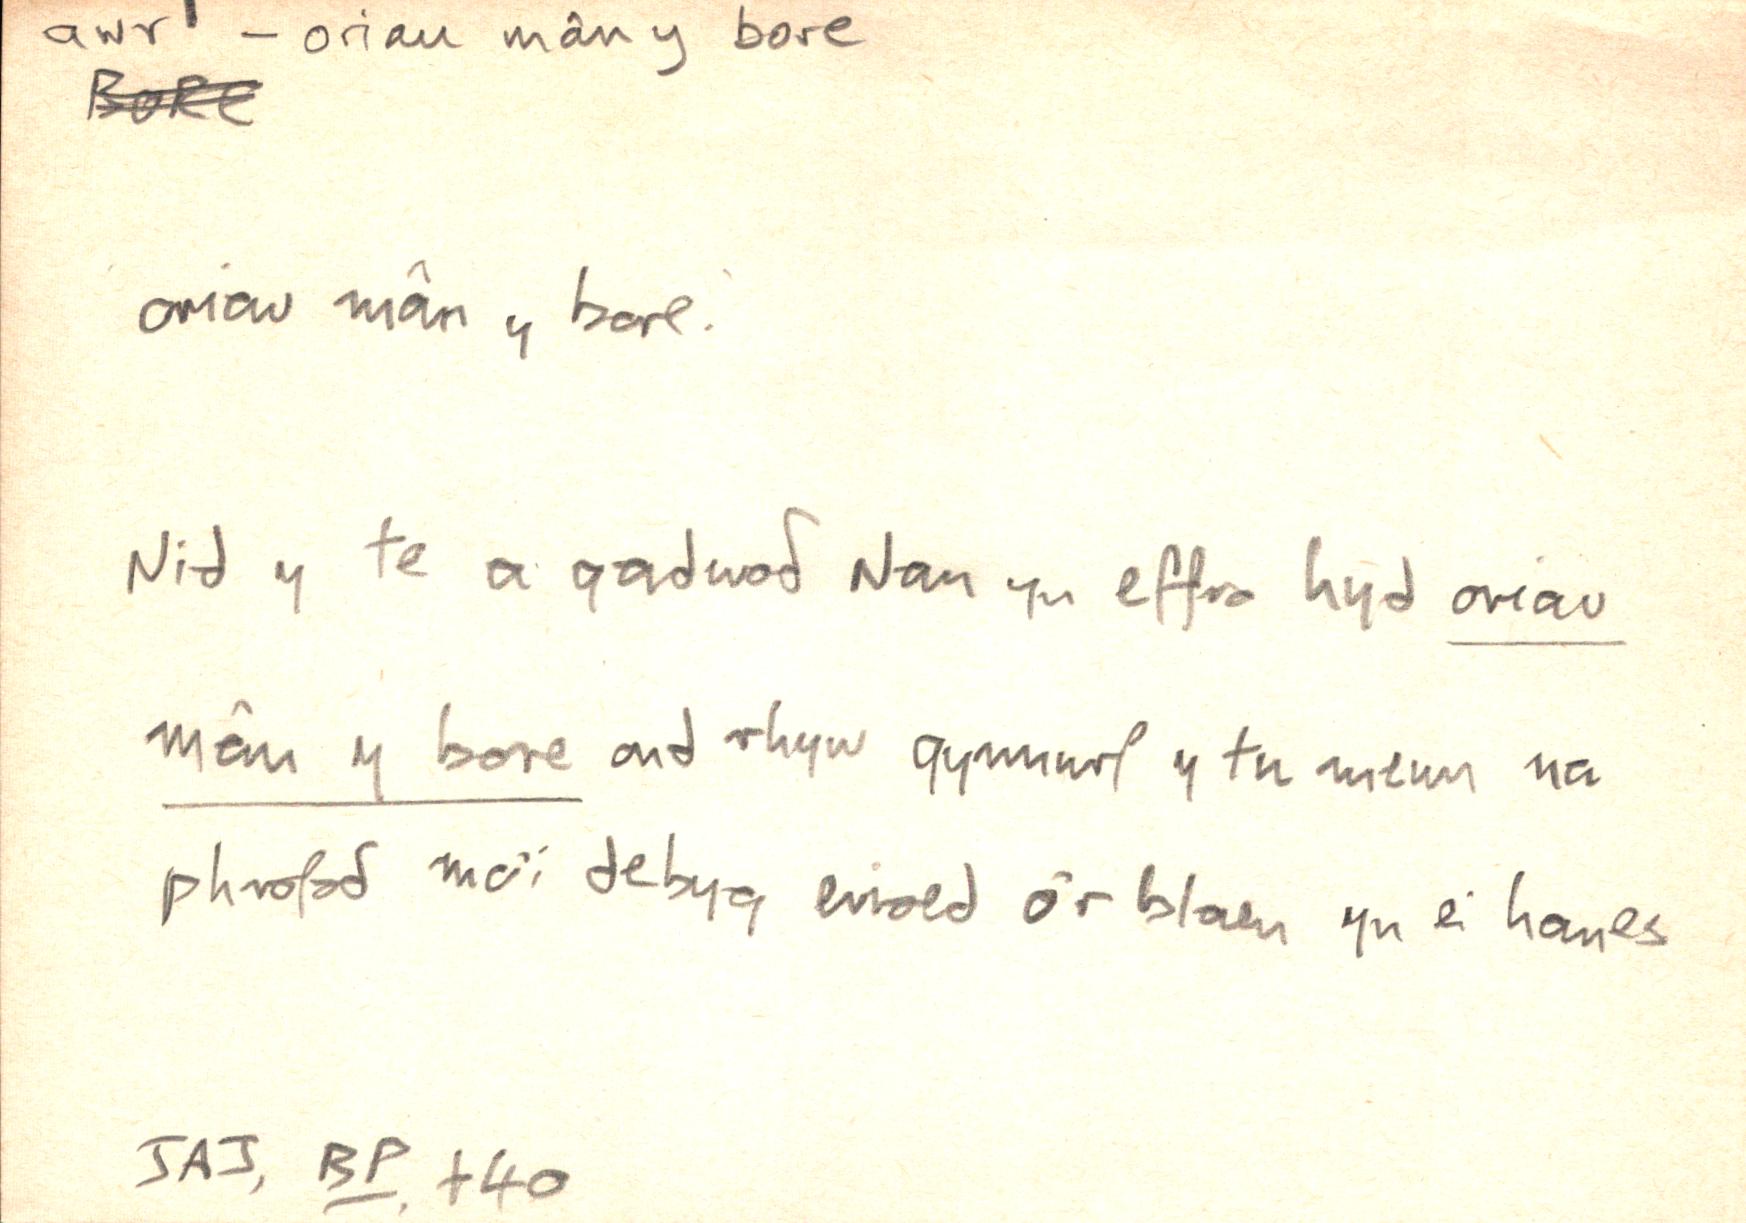 awr¹ – oriau mân y bore
BORE
oriau mân y bore.
Nid y te a gadwodd Nan yn effro hyd oriau
mân y bore ond rhyw gynnwrf y tu mewn na
phrofodd mo'i debyg erioed o'r blaen yn ei hanes
JAJ, BP, t40